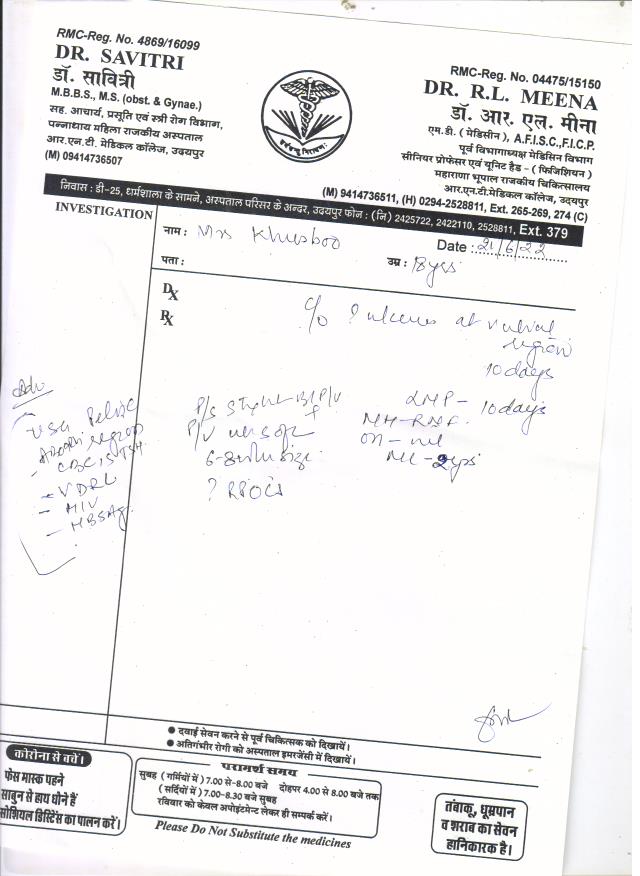 RMC-Reg. No. 4869/16099
DR. SAVITRI
डॉ. सावित्री
M.B.B.S., M.S. (obst. & Gynae.)
सह. आचार्य, प्रसूति एवं स्त्री रोग विभाग,
पन्नाधाय महिला राजकीय अस्पताल
आर.एन.टी. मेडिकल कॉलेज, उदयपुर
(M) 09414736507
RMC-Reg. No. 04475/15150
DR. R.L. MEENA
डॉ. आर. एल. मीना
एम.डी. ( मेडिसीन ), A.F.I.S.C.,F.I.C.P.
पूर्व विभागाध्यक्ष मेडिसिन विभाग
सीनियर प्रोफेसर एवं यूनिट हैड - ( फिजिशियन )
महाराणा भूपाल राजकीय चिकित्सालय
आर.एन.टी.मेडिकल कॉलेज, उदयपुर
(M) 9414736511, (H) 0294-2528811, Ext. 265-269, 274 (C)
निवास : डी-25, धर्मशाला के सामने, अस्पताल परिसर के अन्दर, उदयपुर फोन : (नि) 2425722, 2422110, 2528811, Ext. 379
INVESTIGATION
नाम : Mrs Khusboo
Date : 21/6/22
पता :
उम्र : 18 yrs
Dx
Rx
c/o ? ulcers at vulval
region
10 days
Adv
USG Pelvic
region
- CBC, TSH
- VDRL
- HIV
- HBSAg
P/S
LMP - 10 days
P/V
MH - 
OH - nil
ML - 2 yrs
?
● दवाई सेवन करने से पूर्व चिकित्सक को दिखायें।
● अतिगंभीर रोगी को अस्पताल इमरजेंसी में दिखायें।
कोरोना से बचें।
फेस मास्क पहने
साबुन से हाथ धोने हैं
सोशियल डिस्टेंस का पालन करें।
परामर्श समय
सुबह ( गर्मियों में ) 7.00 से-8.00 बजे दोहपर 4.00 से 8.00 बजे तक
( सर्दियों में ) 7.00-8.30 बजे सुबह
रविवार को केवल अपोइंटमेन्ट लेकर ही सम्पर्क करें।
Please Do Not Substitute the medicines
तंबाकू, धूम्रपान
व शराब का सेवन
हानिकारक है।